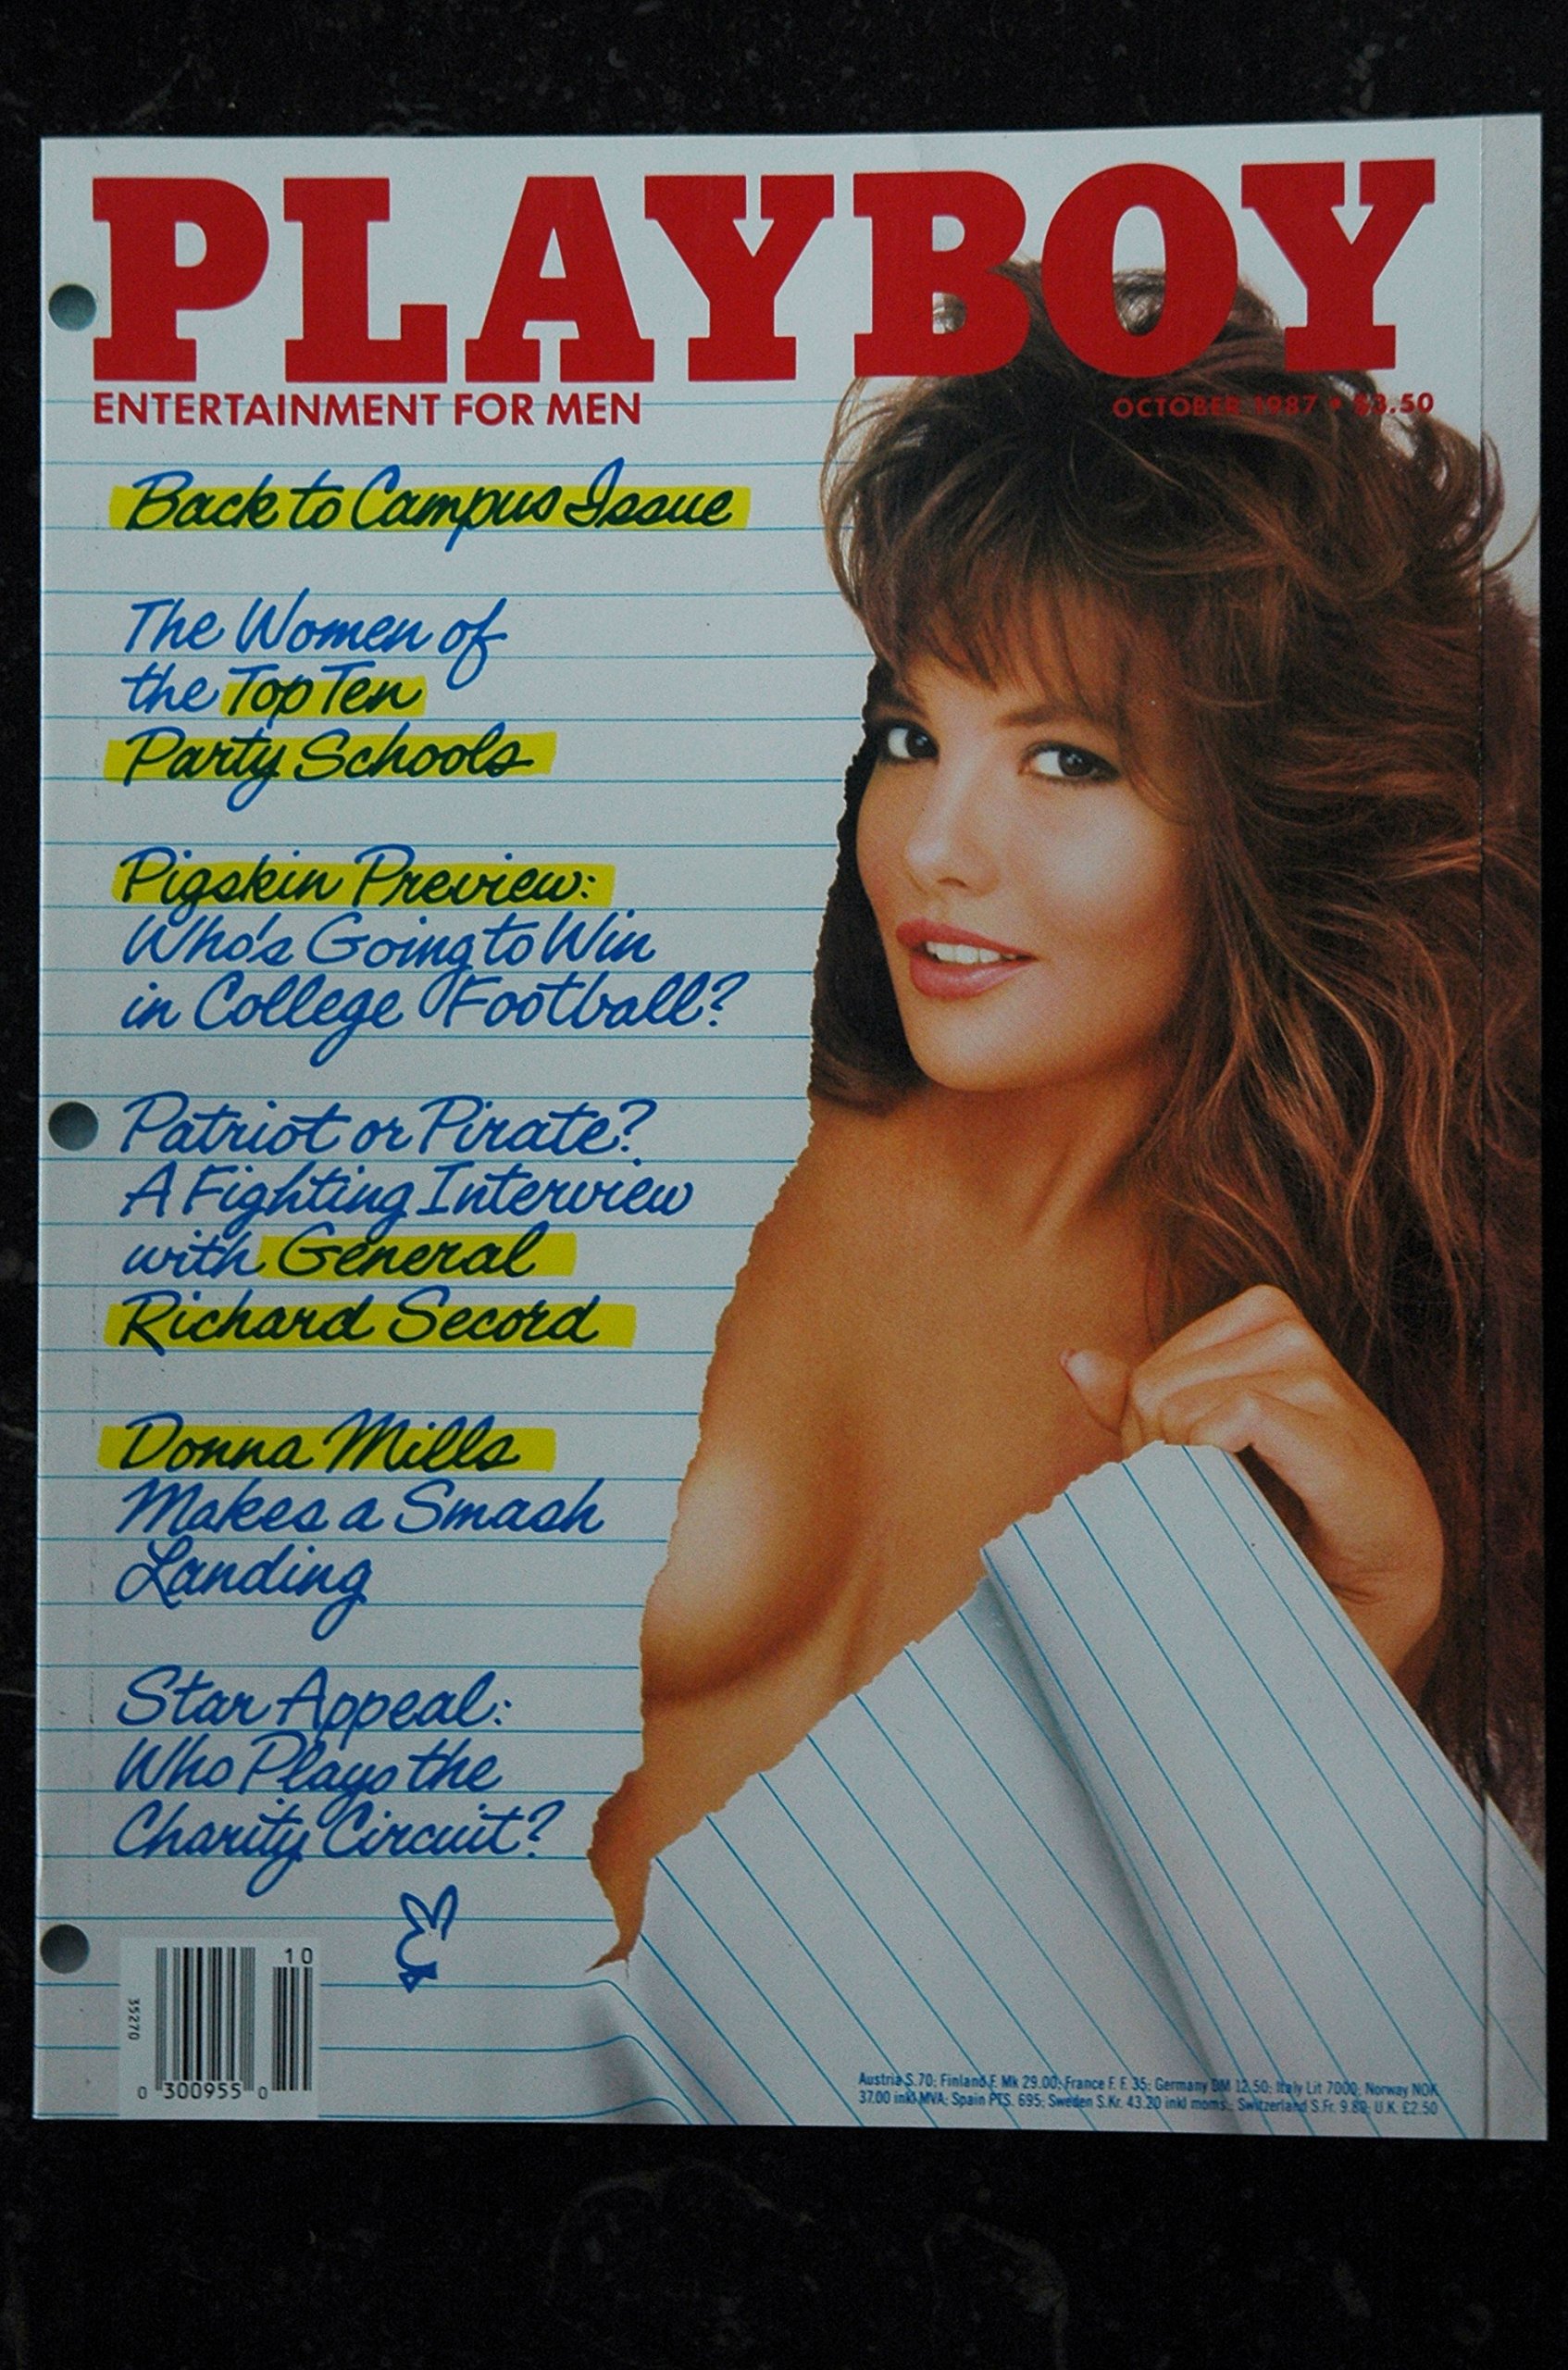 PLAYBOY
ENTERTAINMENT FOR MEN
OCTOBER 1987 • $3.50
Back to Campus Issue
The Women of
the Top Ten
Party Schools
Pigskin Preview:
Who's Going to Win
in College Football?
Patriot or Pirate?
A Fighting Interview
with General
Richard Secord
Donna Mills
Makes a Smash
Landing
Star Appeal:
Who Plays the
Charity Circuit?
10
35270
0 300955 0
Austria S.70; Finland F. Mk 29.00; France F. F. 35; Germany DM 12.50; Italy Lit 7000; Norway NOK
37.00 inkl MVA; Spain PTS. 695; Sweden S.Kr. 43.20 inkl moms.; Switzerland S.Fr. 9.80; U.K. £2.50